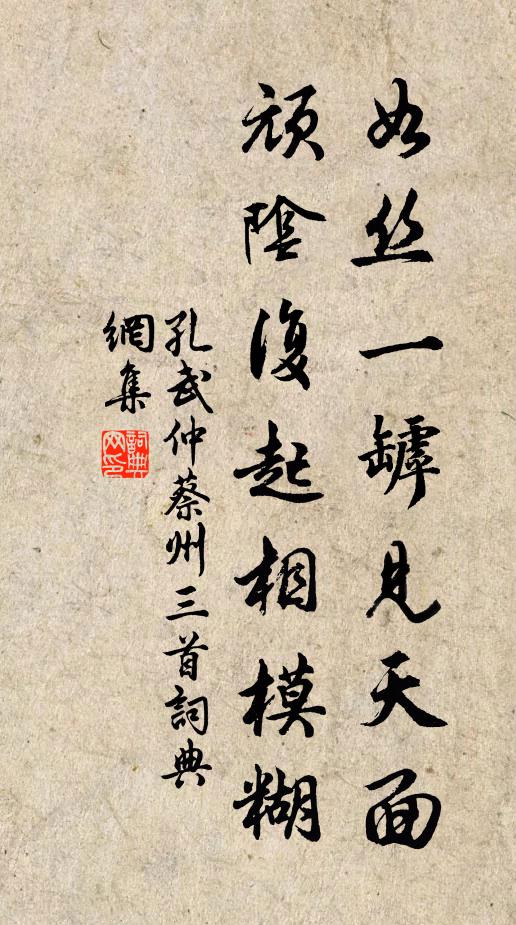 如丝一罅見天面
頑陰復起相模糊
孔武仲蔡州三首詞典
網集
詞典
网印